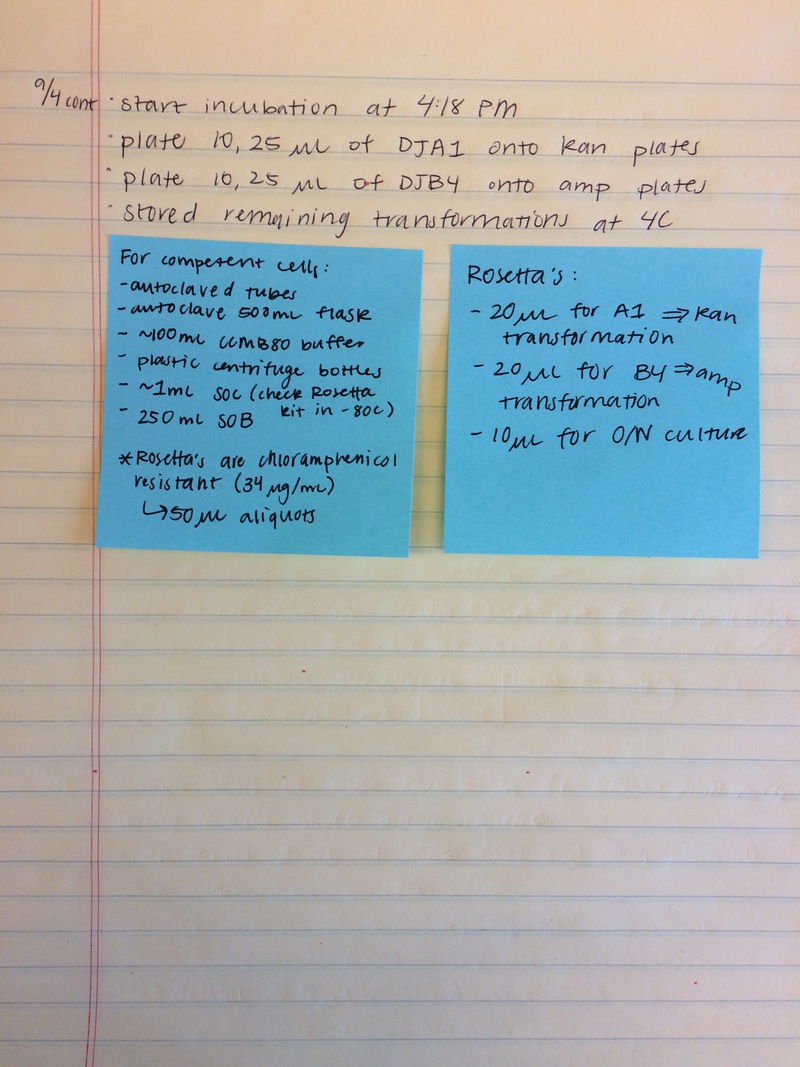 9/4 cont · start incubation at 4:18 PM
· plate 10, 25 μL of DJA1 onto kan plates
· plate 10, 25 μL of DJB4 onto amp plates
· stored remaining transformations at 4C
For competent cells:
- autoclaved tubes
- autoclave 500mL flask
- ~100mL CCMB80 buffer
- plastic centrifuge bottles
- ~1mL SOC (check Rosetta
kit in -80C)
- 250 mL SOB
*Rosetta's are chloramphenicol
resistant (34 μg/mL)
↳ 50 μL aliquots
Rosetta's:
- 20 μL for A1 ⇒ kan
transformation
- 20 μL for B4 ⇒ amp
transformation
- 10 μL for O/N culture